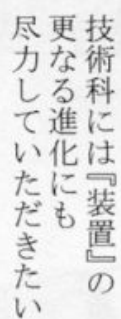 技術科には『装置』の
更なる進化にも
尽力していただきたい